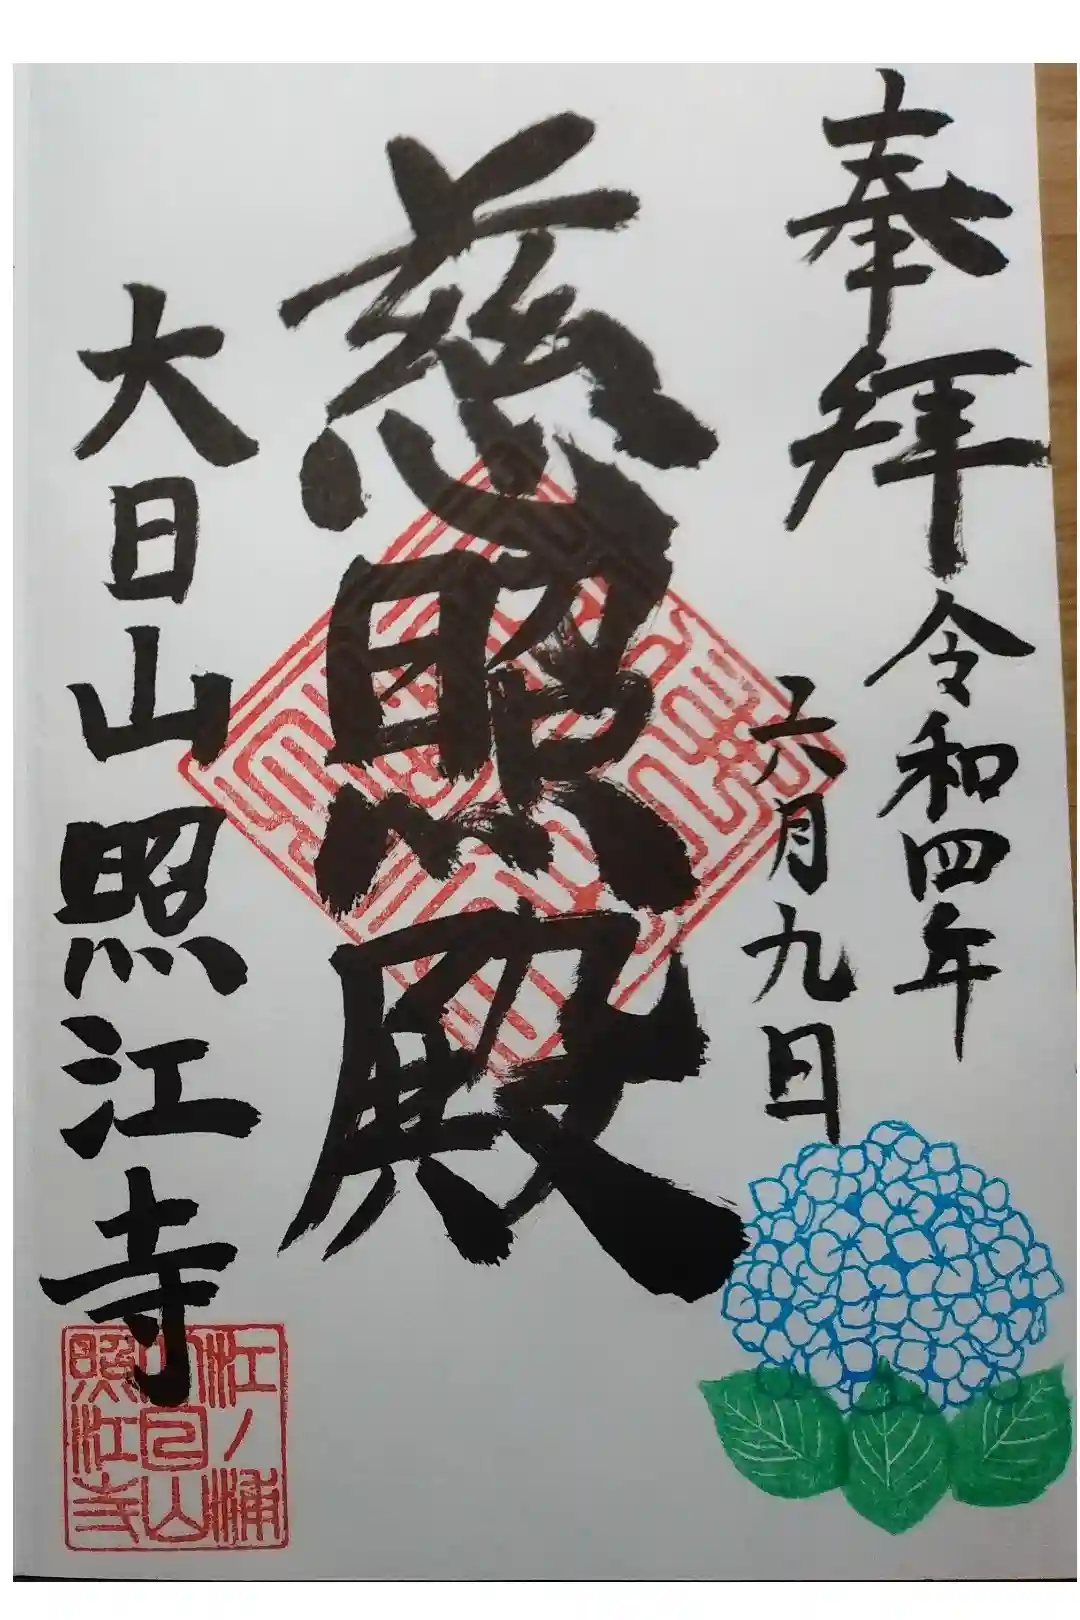 奉拝
令和四年
六月九日
慈照殿
大日山照江寺
江ノ浦
大日山
照江寺